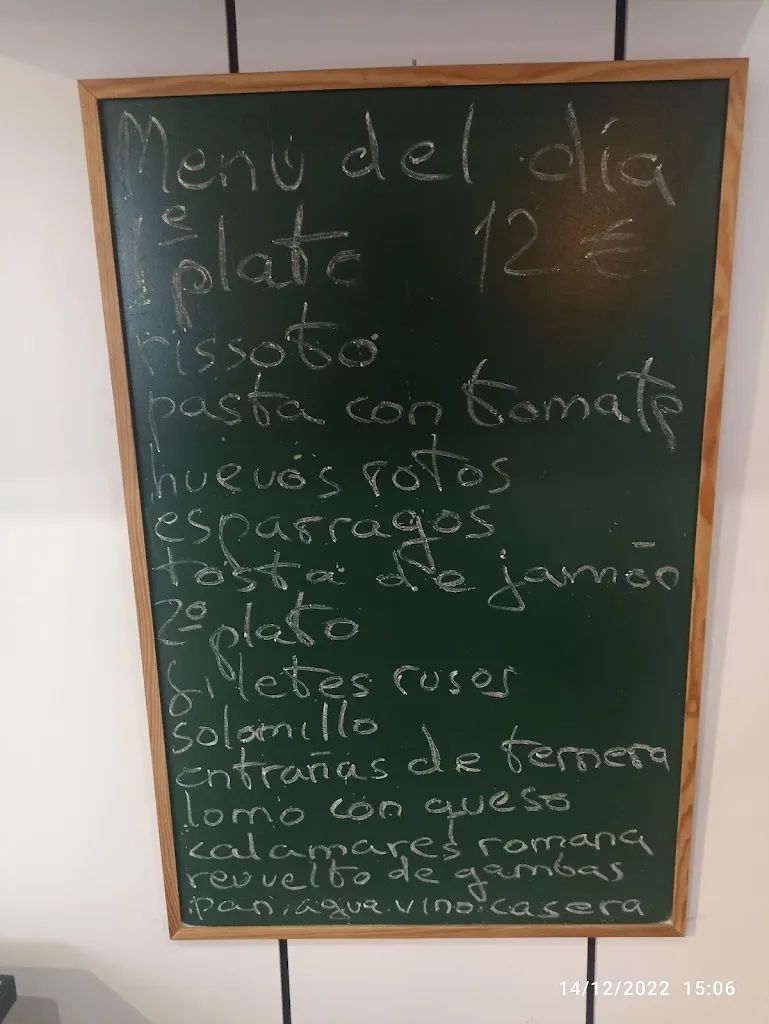 Menú del día
1º plato 12 €
rissoto
pasta con tomate
huevos rotos
esparragos
tosta de jamón
2º plato
filetes rusos
solomillo
entrañas de ternera
lomo con queso
calamares romana
revuelto de gambas
pan, agua, vino, casera
14/12/2022 15:06